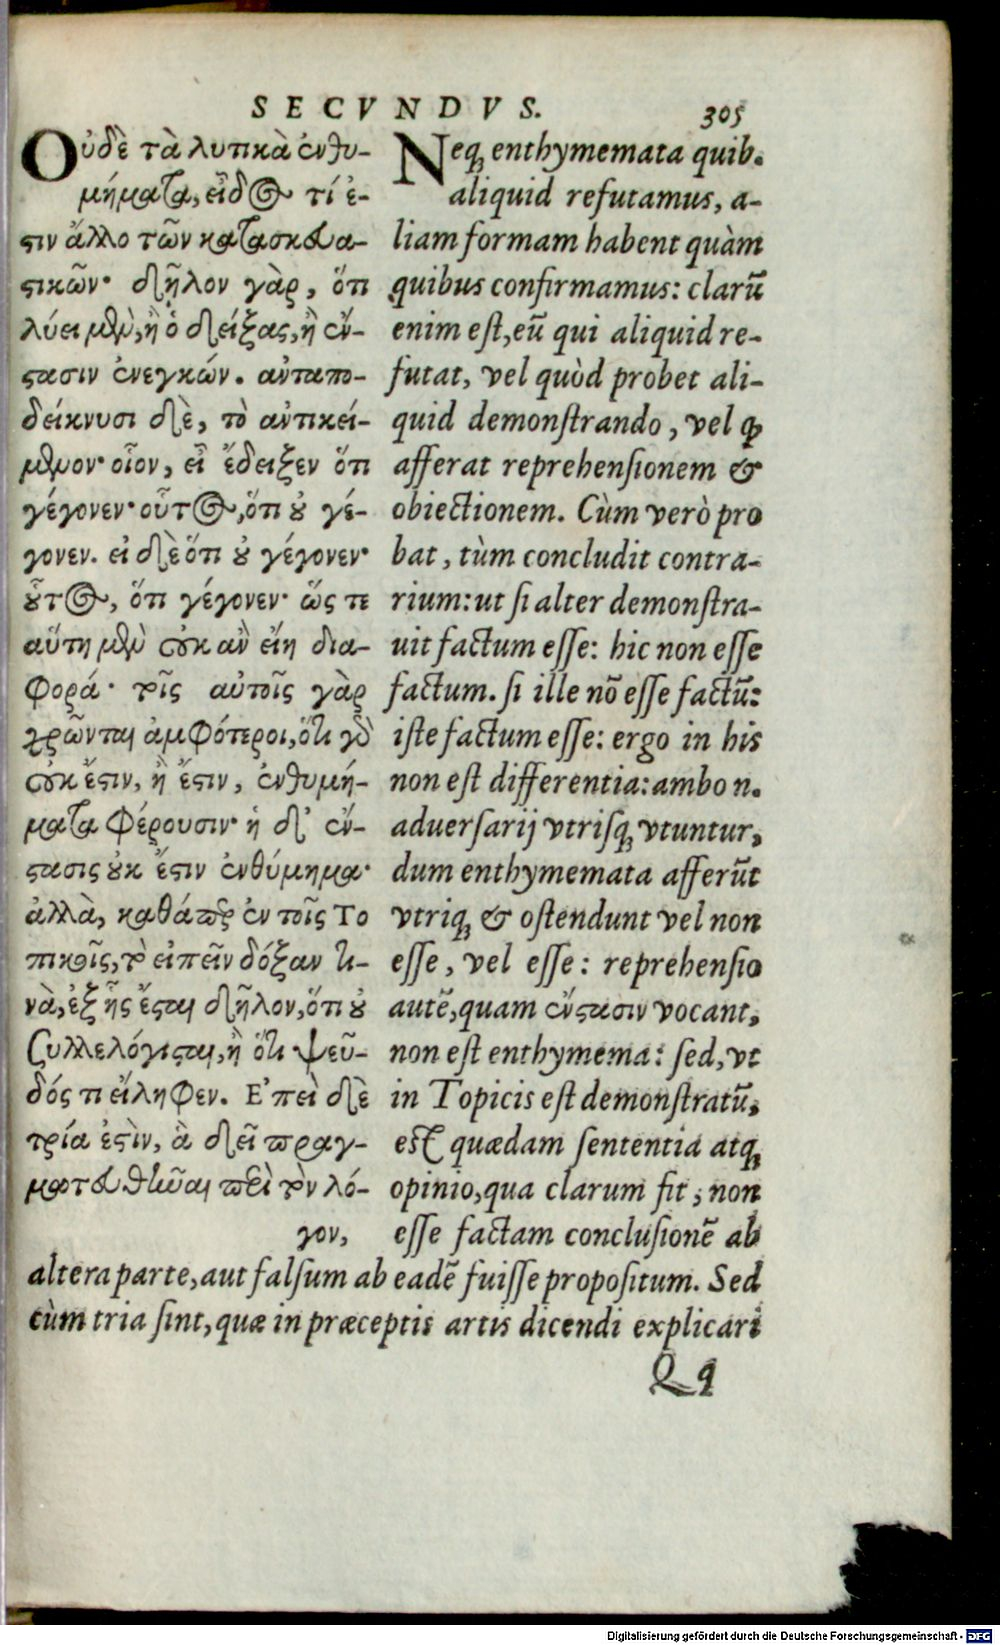 SECVNDVS. 305
Οὐδὲ τὰ λυτικὰ ἐνθυ-
μήματα, εἶδος τί ἐ-
στιν ἄλλο τῶν κατασκευα-
στικῶν· δῆλον γὰρ, ὅτι
λύει μὲν, ἢ ὁ δείξας, ἢ ἔν-
στασιν ἐνεγκών. ἀνταπο-
δείκνυσι δὲ, τὸ ἀντικεί-
μενον· οἷον, εἰ ἔδειξεν ὅτι
γέγονεν· οὗτος, ὅτι οὐ γέ-
γονεν. εἰ δὲ ὅτι οὐ γέγονεν·
οὗτος, ὅτι γέγονεν· ὥς τε
αὕτη μὲν οὐκ ἂν εἴη δια-
φορά· τοῖς αὐτοῖς γὰρ
χρῶνται ἀμφότεροι, ὅτι γὰρ
οὐκ ἔστιν, ἢ ἔστιν, ἐνθυμή-
ματα φέρουσιν· ἡ δ' ἔν-
στασις οὐκ ἔστιν ἐνθύμημα·
ἀλλὰ, καθάπερ ἐν τοῖς Το
πικοῖς, τὸ εἰπεῖν δόξαν τι-
νὰ, ἐξ ἧς ἔσται δῆλον, ὅτι οὐ
συλλελόγισται, ἢ ὅτι ψεῦ-
δός τι εἴληφεν. Ἐπεὶ δὲ
τρία ἐστὶν, ἃ δεῖ πραγ-
ματευθῆναι περὶ τὸν λό-
γον,
Neq; enthymemata quib.
aliquid refutamus, a-
liam formam habent quàm
quibus confirmamus: clarũ
enim est, eũ qui aliquid re-
futat, vel quòd probet ali-
quid demonstrando, vel ꝙ
afferat reprehensionem &
obiectionem. Cùm verò pro
bat, tùm concludit contra-
rium: ut si alter demonstra-
uit factum esse: hic non esse
factum. si ille nõ esse factũ:
iste factum esse: ergo in his
non est differentia: ambo n.
aduersarij vtrisq; vtuntur,
dum enthymemata afferũt
vtriq; & ostendunt vel non
esse, vel esse: reprehensio
autẽ, quam ἔνστασιν vocant,
non est enthymema: sed, vt
in Topicis est demonstratũ,
est quædam sententia atq;
opinio, qua clarum fit, non
esse factam conclusionẽ ab
altera parte, aut falsum ab eadẽ fuisse propositum. Sed
cùm tria sint, quæ in præceptis artis dicendi explicari
Qq
Digitalisierung gefördert durch die Deutsche Forschungsgemeinschaft - DFG